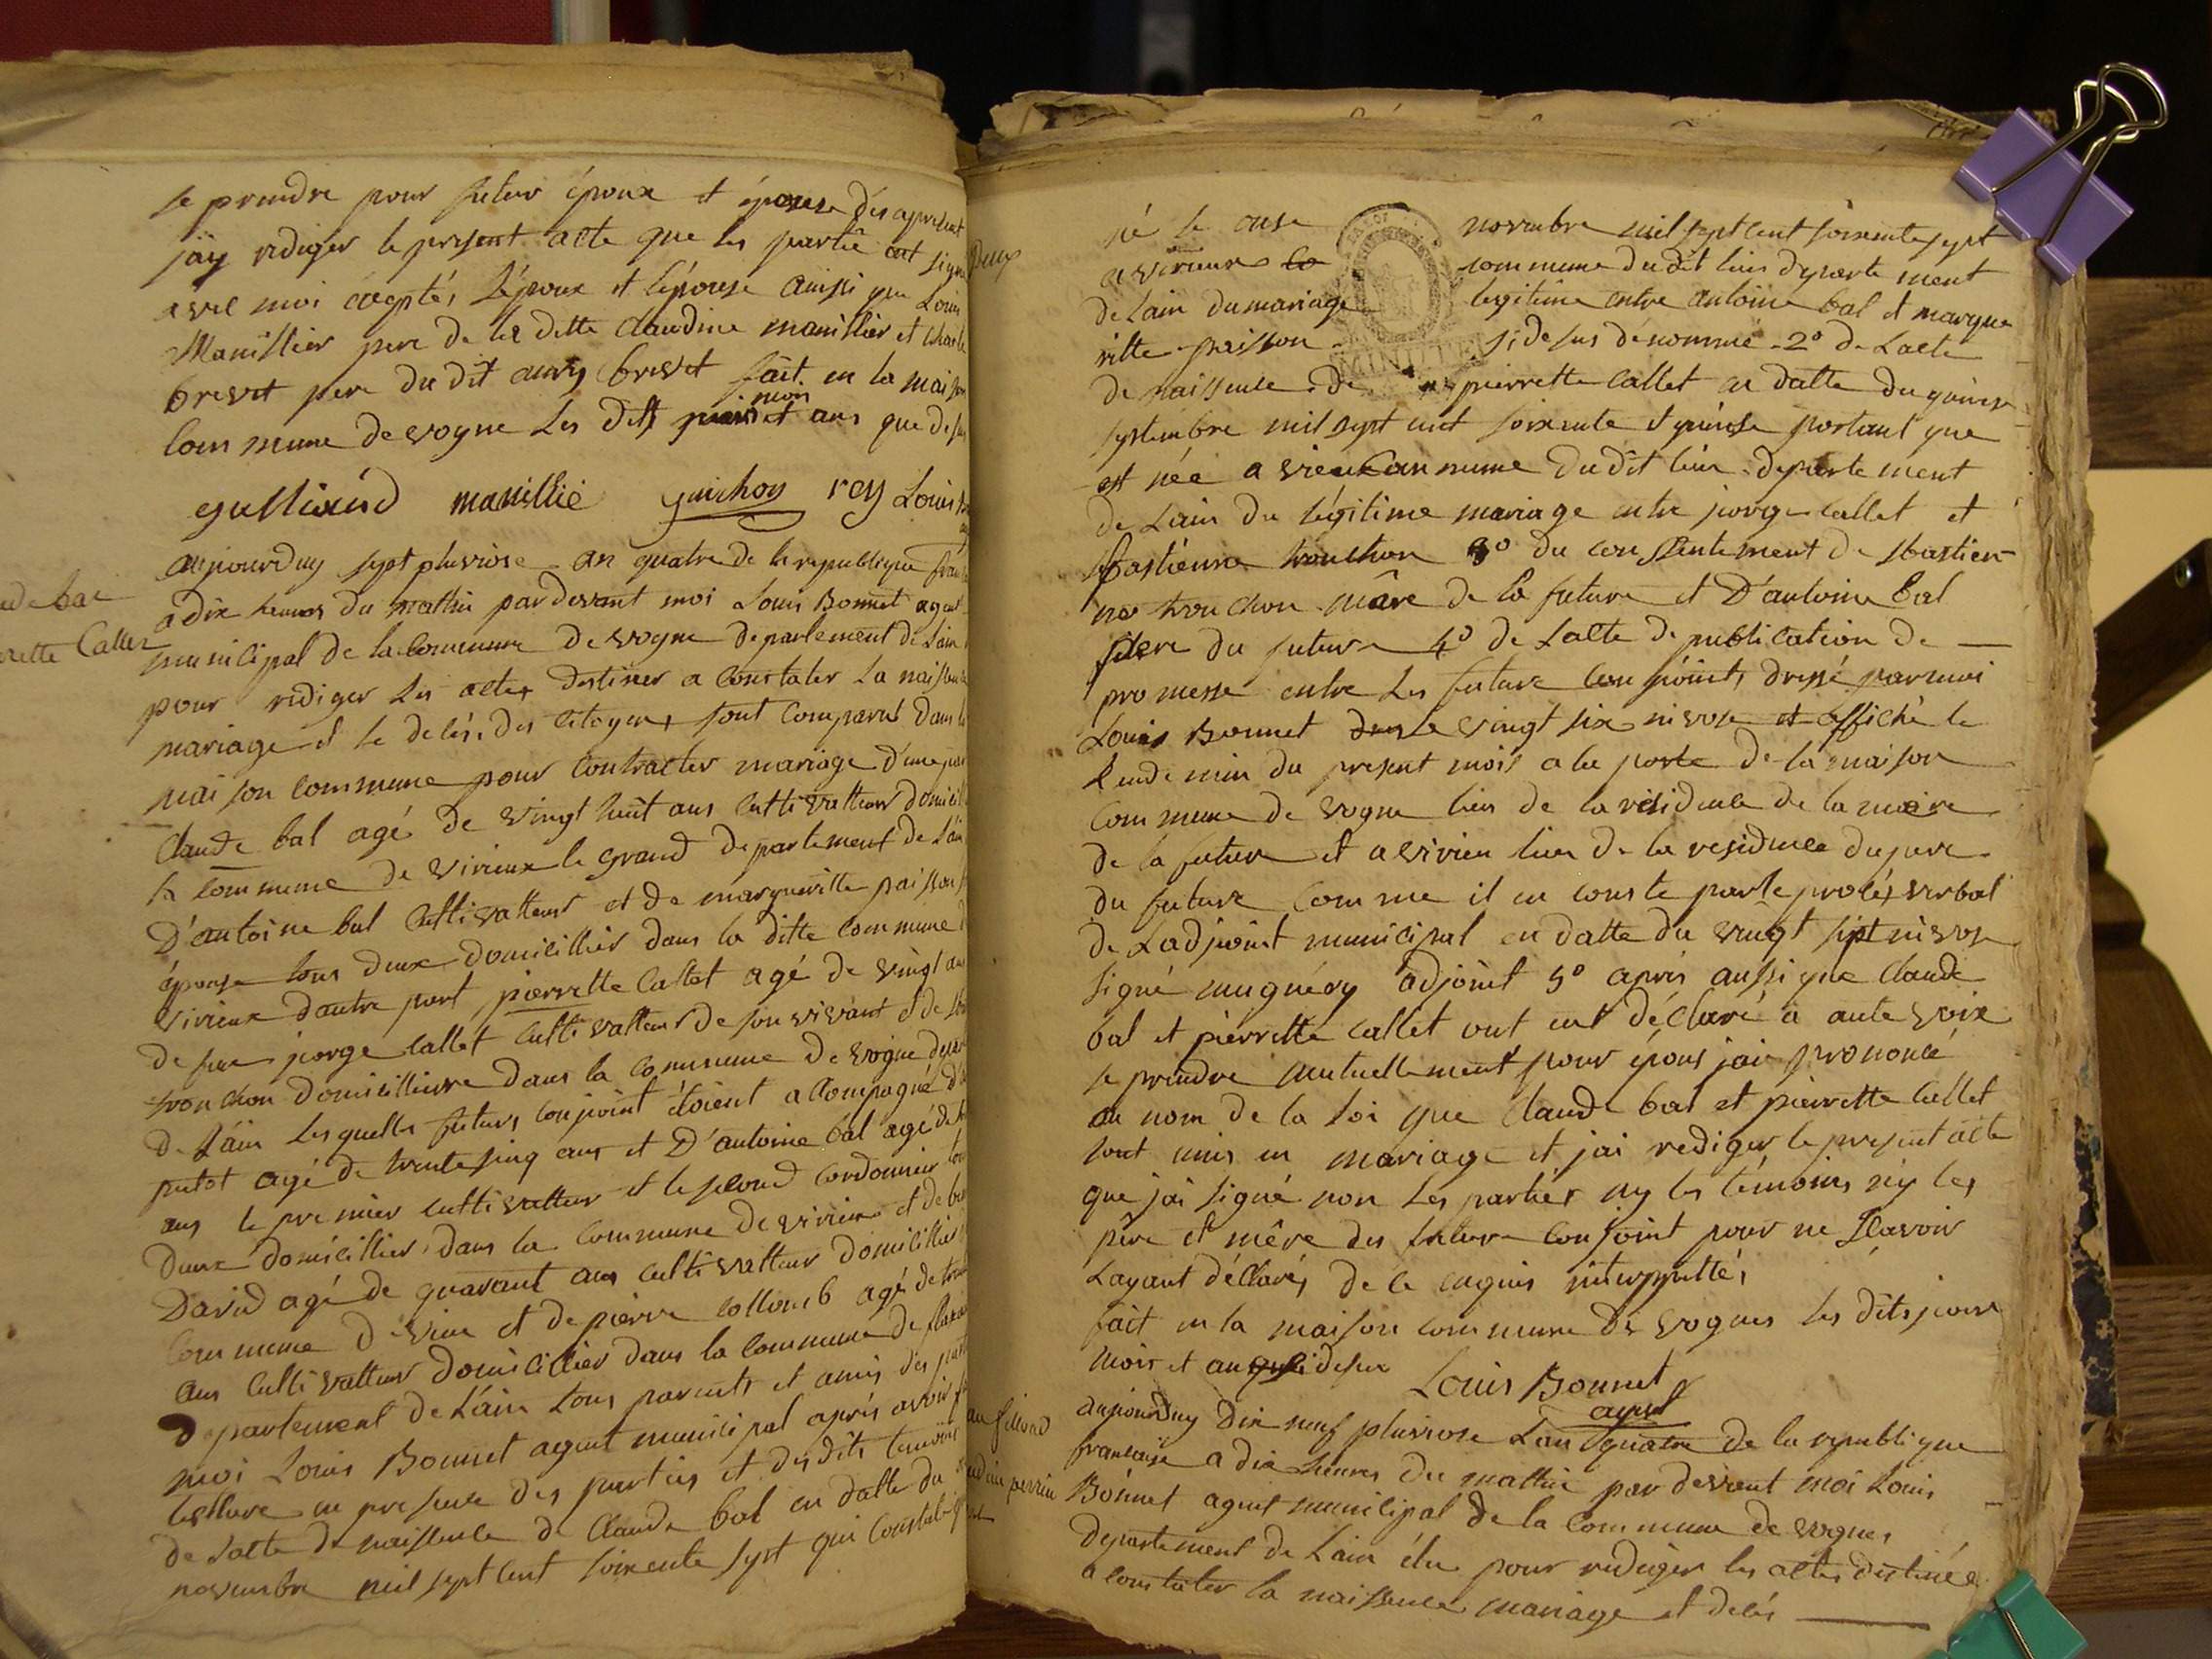 se prendre pour futur époux et épouse dès apresent
jäy rediger le present acte que les partie ont signé
avec moi exeptés l'époux et l'épouse ainssi que Louis
Manillier pere de la ditte Claudine manillier et
brevet pere du dit brevet fait en la maison
Commune de vogne Les dits jour mois et ans que dessus
manillié Guichon rey Louis
aujourduy sept pluviose an quatre de la republique
a dix heures du mathin pardevant moi Louis Bonnet agent
municipal de la Commune de vogne departement de Lain
pour rediger les actes destiner a Constater la naissence
mariage et le decés des Citoyens sont Comparus dans la
mai son commune pour Contracter mariage d'une part
Claude bal agé de vingt huit ans Cultivatteur domicil
la commune de virieux le grand departement de Lain
D'antoine bal Cultivatteur et de margueritte paisson
épouse tous deux domicillier dans la ditte Commune
virieux dautre part pierrette Callet agé de vingt ans
de feu jorge Callet Cultivatteur de son vivant et de
tronchon domicilliere dans la Commune de vogne
de Lain Lesquelles futurs conjoint étoient accompagné
putot agé de trente sinq ans et D'antoine bal agé de
ans le premier cultivatteur et le second cordonnier
deux domicillier dans la Commune de virieux et de
David agé de quarant ans cultivatteur domicillier
Commune de vieu et de pierre Collomb agé de
ans Cultivatteur domicillier dans la Commune de
departement de Lain tous parents et amis des
moi Louis Bonnet agent municipal aprés avoir
lecture en presence des parties et des dits temoins
de Lacte de naissence de Claude bal en datte du
novembre mil sept cent soixente sept qui Constate
ne bal
rette Callet
né le onse novembre mil sept cent soixente sept
a virieux la commune du dit lieu departe ment
de Lain du mariage legitime entre antoine bal et margue
ritte paisson si desus dénommé 2° de Lacte
de naissence de pierrette Callet en datte du quinse
septembre mil sept cent soixente et quinse portant que
est née a vieu Commune du dit lieu departe ment
de Lain du légitime mariage entre jorge Callet et
sbastienne tronchon 3° du consentement de sbastien
ne tronchon mère de la future et D'antoine bal
pere du future 4° de Lacte de publication de —
promesse entre les future Conjoint, dressé par moi
Louis Bonnet vingt six nivose et affiché le
lendemin du present mois a la porte de la maison
Commune de vogne lieu de la residence de la maire
de la future et a virieu lieu de la residence du pere
du future Comme il en conste par le procés verbal
de Ladjoint municipal en datte du vingt sept nivose
signé adjoint 5° aprés aussi que Claude
bal et pierrette Callet ont eut déclaré a aute voix
se prendre mutuellement pour épous jai prononcé
au nom de la loi que Claude bal et pierrette Callet
sont unis en mariage et jai rediger le present acte
que jai signé non les parties ny les témoins ny les
père et mère des future conjoint pour ne scavoir
Layant déclarés de ce enquis interppellés
fait en la maison commune de vognes les dits jours
mois et an desus
Louis Bonnet
agent
aujourduy dix neuf pluviose Lan quatre de la republique
francaise a dix heures du mattin par devant moi Louis
Bonnet agent municipal de la Commune de vognes
departement de Lain élu pour rediger les actes destinée
a constater la naissence mariage et decés
perrin